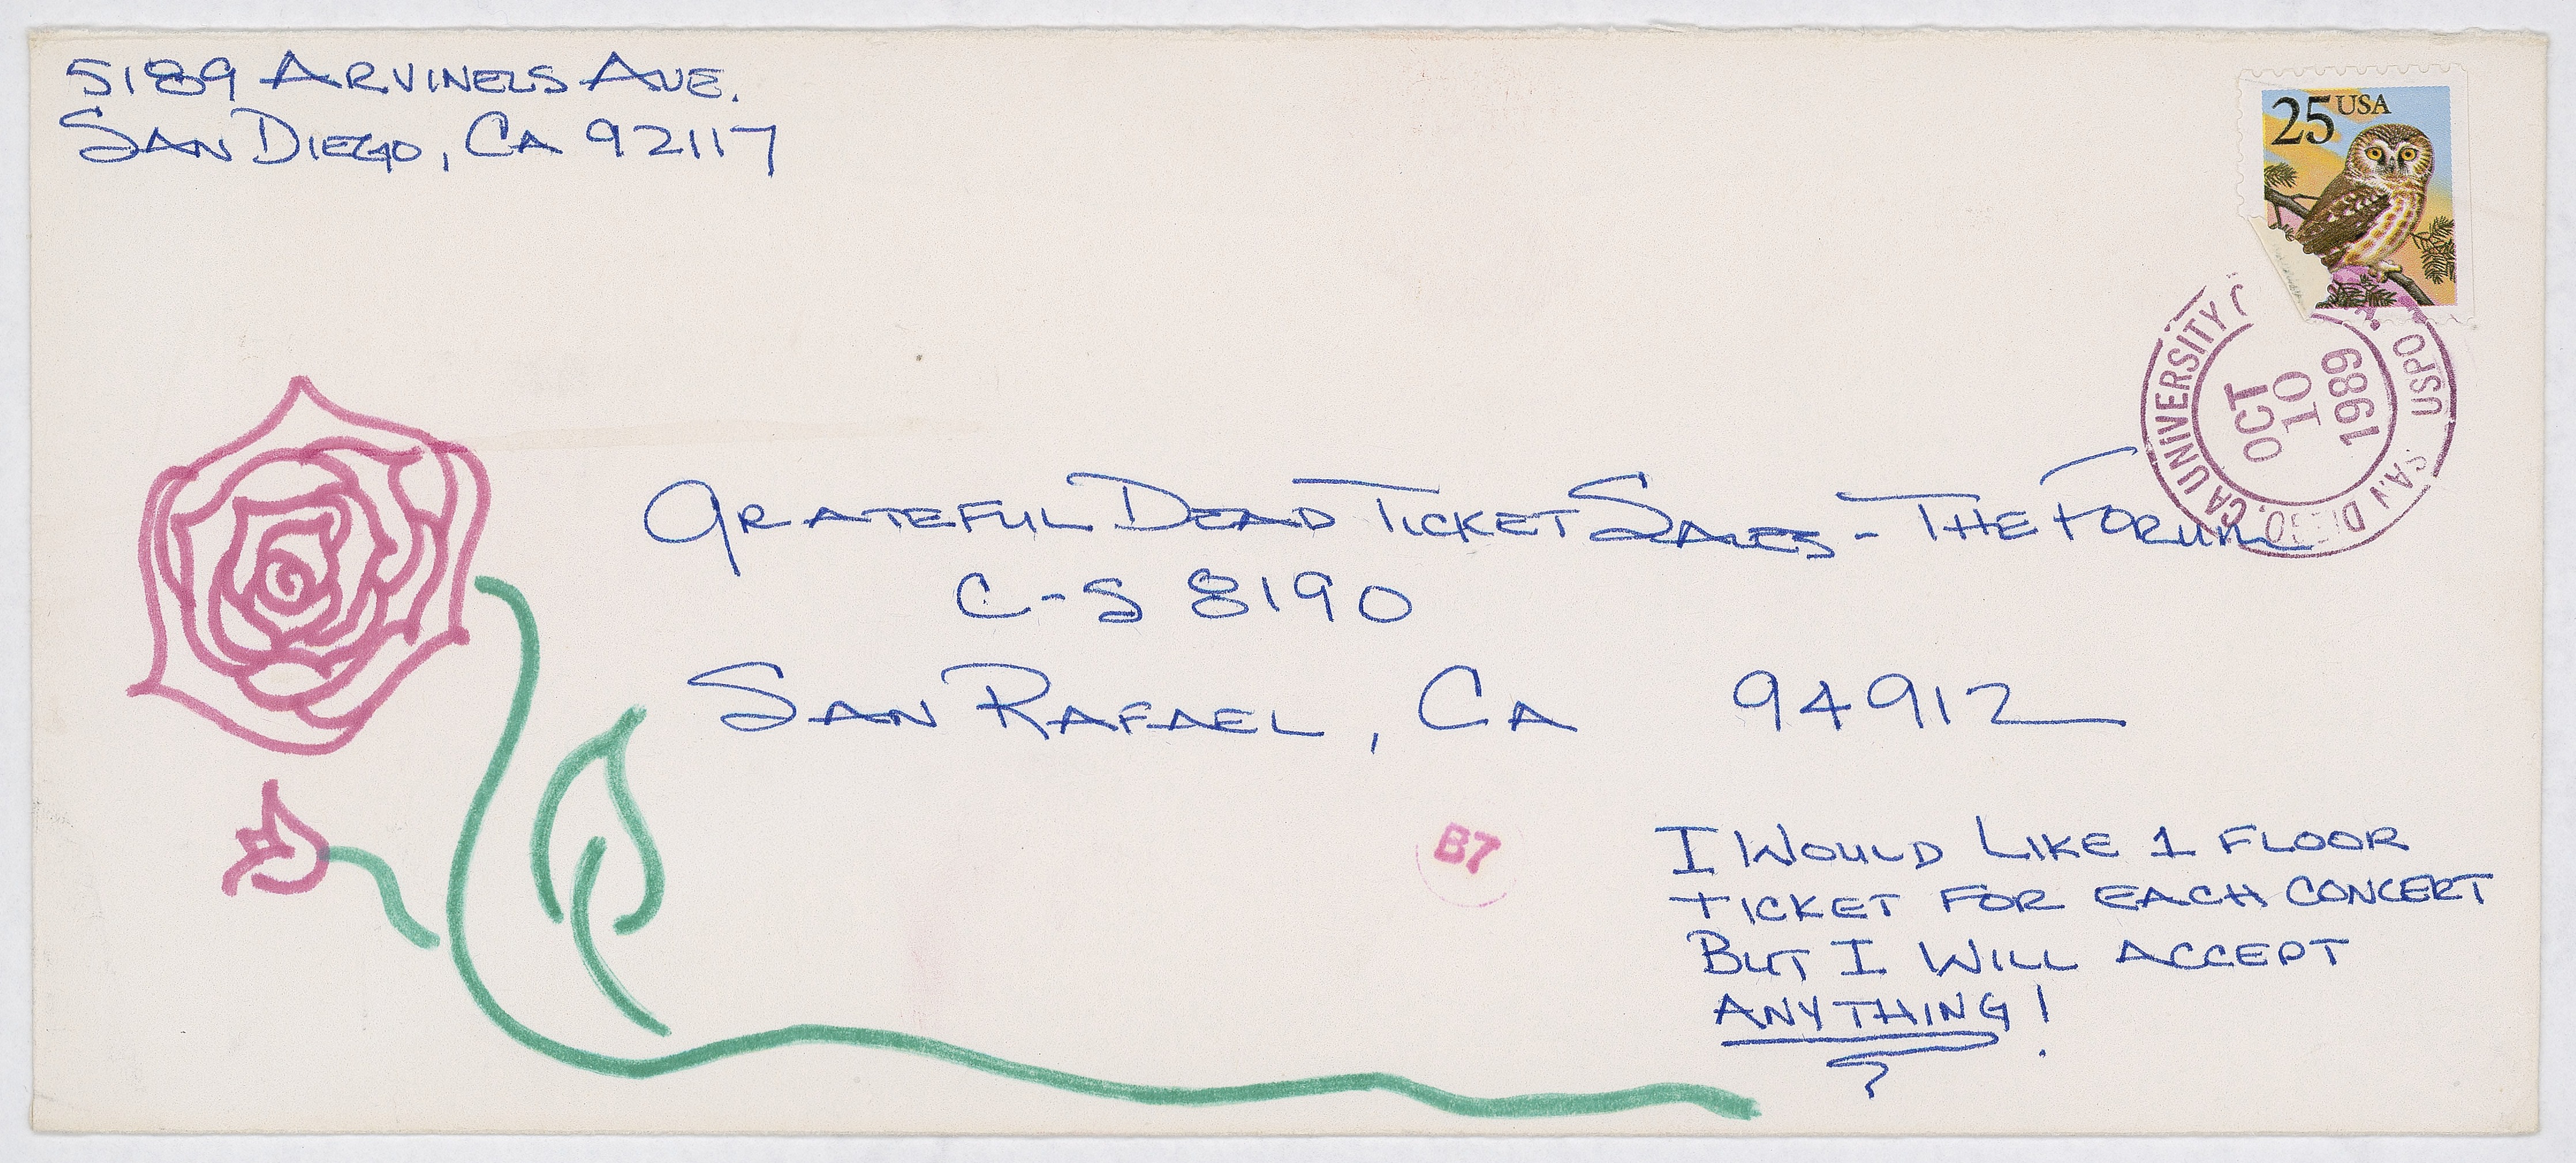 5189 ARVINELS AVE.
SAN DIEGO, CA 92117
25 USA
USPO SAN DIEGO, CA UNIVERSITY
OCT
10
1989
GRATEFUL DEAD TICKET SALES - THE FORUM
C-S 8190
SAN RAFAEL, CA 94912
B7
I WOULD LIKE 1 FLOOR
TICKET FOR EACH CONCERT
BUT I WILL ACCEPT
ANYTHING!